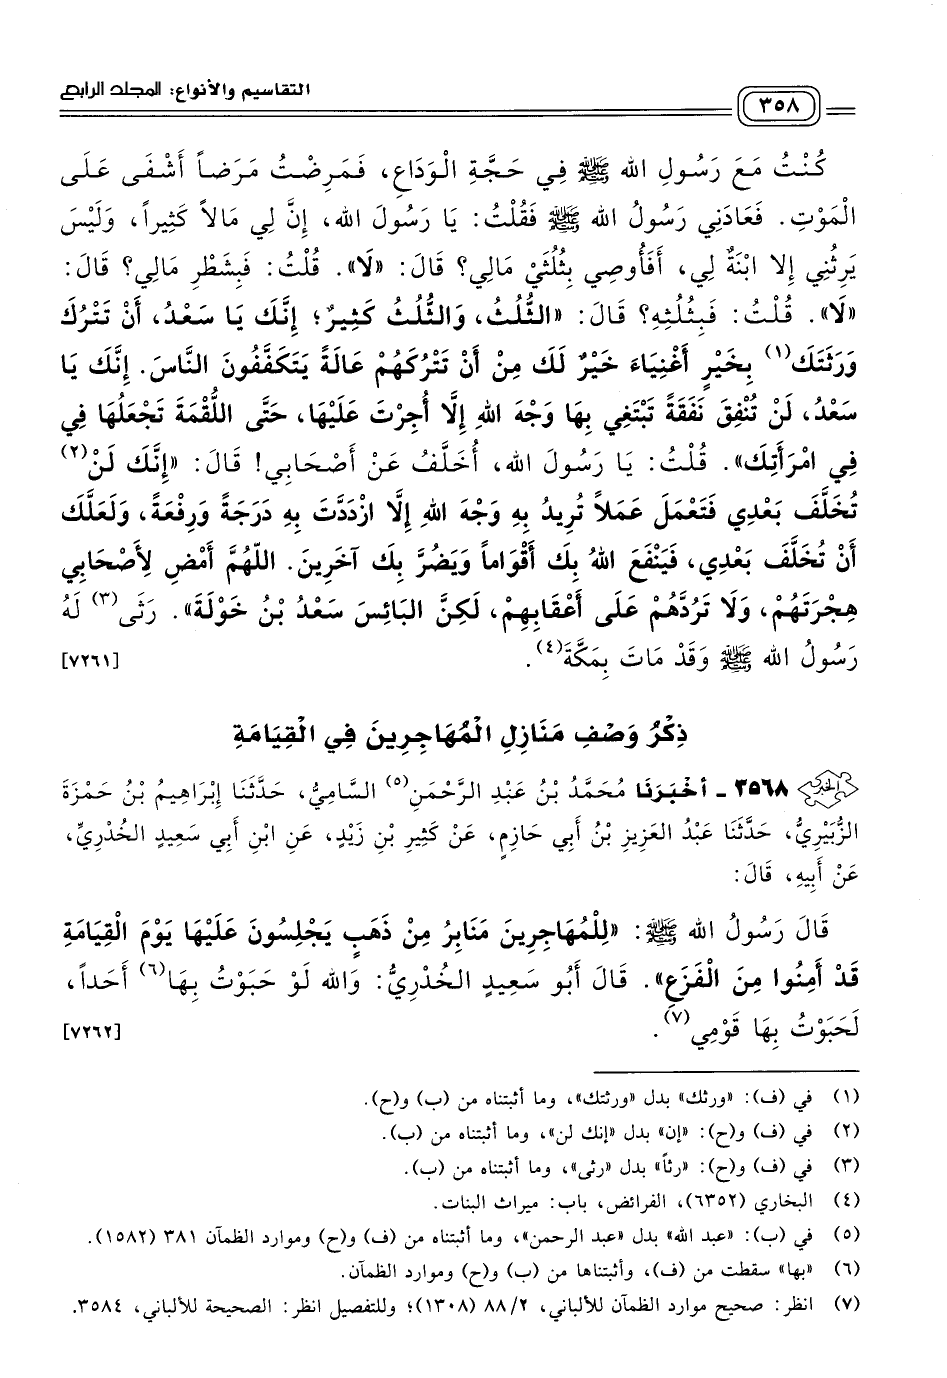 التقاسيم والأنواع: المجلد الرابع
٣٥٨
كُنْتُ مَعَ رَسُولِ الله ﷺ فِي حَجَّةِ الْوَدَاعِ، فَمَرِضْتُ مَرَضاً أَشْفَى عَلَى
الْمَوْتِ. فَعَادَنِي رَسُولُ الله ﷺ فَقُلْتُ: يَا رَسُولَ الله، إِنَّ لِي مَالاً كَثِيراً، وَلَيْسَ
يَرِثُنِي إِلا ابْنَةٌ لِي، أَفَأُوصِي بِثُلُثَيْ مَالِي؟ قَالَ: «لَا». قُلْتُ: فَبِشَطْرِ مَالِي؟ قَالَ:
«لَا». قُلْتُ: فَبِثُلُثِهِ؟ قَالَ: «الثُّلُثَ، وَالثُّلُثُ كَثِيرٌ؛ إِنَّكَ يَا سَعْدُ، أَنْ تَتْرُكَ
وَرَثَتَكَ(١) بِخَيْرٍ أَغْنِيَاءَ خَيْرٌ لَكَ مِنْ أَنْ تَتْرُكَهُمْ عَالَةً يَتَكَفَّفُونَ النَّاسَ. إِنَّكَ يَا
سَعْدُ، لَنْ تُنْفِقَ نَفَقَةً تَبْتَغِي بِهَا وَجْهَ اللهِ إِلَّا أُجِرْتَ عَلَيْهَا، حَتَّى اللُّقْمَةَ تَجْعَلُهَا فِي
فِي امْرَأَتِكَ». قُلْتُ: يَا رَسُولَ الله، أُخَلَّفُ عَنْ أَصْحَابِي! قَالَ: «إِنَّكَ لَنْ(٢)
تُخَلَّفَ بَعْدِي فَتَعْمَلَ عَمَلاً تُرِيدُ بِهِ وَجْهَ اللهِ إِلَّا ازْدَدَّتَ بِهِ دَرَجَةً وَرِفْعَةً، وَلَعَلَّكَ
أَنْ تُخَلَّفَ بَعْدِي، فَيَنْفَعَ اللهُ بِكَ أَقْوَاماً وَيَضُرَّ بِكَ آخَرِينَ. اللّهُمَّ أَمْضِ لِأَصْحَابِي
هِجْرَتَهُمْ، وَلَا تَرُدَّهُمْ عَلَى أَعْقَابِهِمْ، لَكِنَّ البَائِسَ سَعْدُ بْنُ خَوْلَةَ». رَثَى(٣) لَهُ
رَسُولُ الله ﷺ وَقَدْ مَاتَ بِمَكَّةَ(٤). [٧٢٦١]
ذِكْرُ وَصْفِ مَنَازِلِ الْمُهَاجِرِينَ فِي الْقِيَامَةِ
٣٥٦٨ - أخْبَرَنَا مُحَمَّدُ بْنُ عَبْدِ الرَّحْمَنِ(٥) السَّامِيُّ، حَدَّثَنَا إِبْرَاهِيمُ بْنُ حَمْزَةَ
الزُّبَيْرِيُّ، حَدَّثَنَا عَبْدُ العَزِيزِ بْنُ أَبِي حَازِمٍ، عَنْ كَثِيرِ بْنِ زَيْدٍ، عَنِ ابْنِ أَبِي سَعِيدٍ الخُدْرِيِّ،
عَنْ أَبِيهِ، قَالَ:
قَالَ رَسُولُ الله ﷺ: «لِلْمُهَاجِرِينَ مَنَابِرُ مِنْ ذَهَبٍ يَجْلِسُونَ عَلَيْهَا يَوْمَ الْقِيَامَةِ
قَدْ أَمِنُوا مِنَ الْفَزَعِ». قَالَ أَبُو سَعِيدٍ الخُدْرِيُّ: وَالله لَوْ حَبَوْتُ بِهَا(٦) أَحَداً،
لَحَبَوْتُ بِهَا قَوْمِي(٧). [٧٢٦٢]
(١) في (ف): «ورثك» بدل «ورثتك»، وما أثبتناه من (ب) و(ح).
(٢) في (ف) و(ح): «إن» بدل «إنك لن»، وما أثبتناه من (ب).
(٣) في (ف) و(ح): «رثاً» بدل «رثى»، وما أثبتناه من (ب).
(٤) البخاري (٦٣٥٢)، الفرائض، باب: ميراث البنات.
(٥) في (ب): «عبد الله» بدل «عبد الرحمن»، وما أثبتناه من (ف) و(ح) وموارد الظمآن ٣٨١ (١٥٨٢).
(٦) «بها» سقطت من (ف)، وأثبتناها من (ب) و(ح) وموارد الظمآن.
(٧) انظر: صحيح موارد الظمآن للألباني، ٨٨/٢ (١٣٠٨)؛ وللتفصيل انظر: الصحيحة للألباني، ٣٥٨٤.